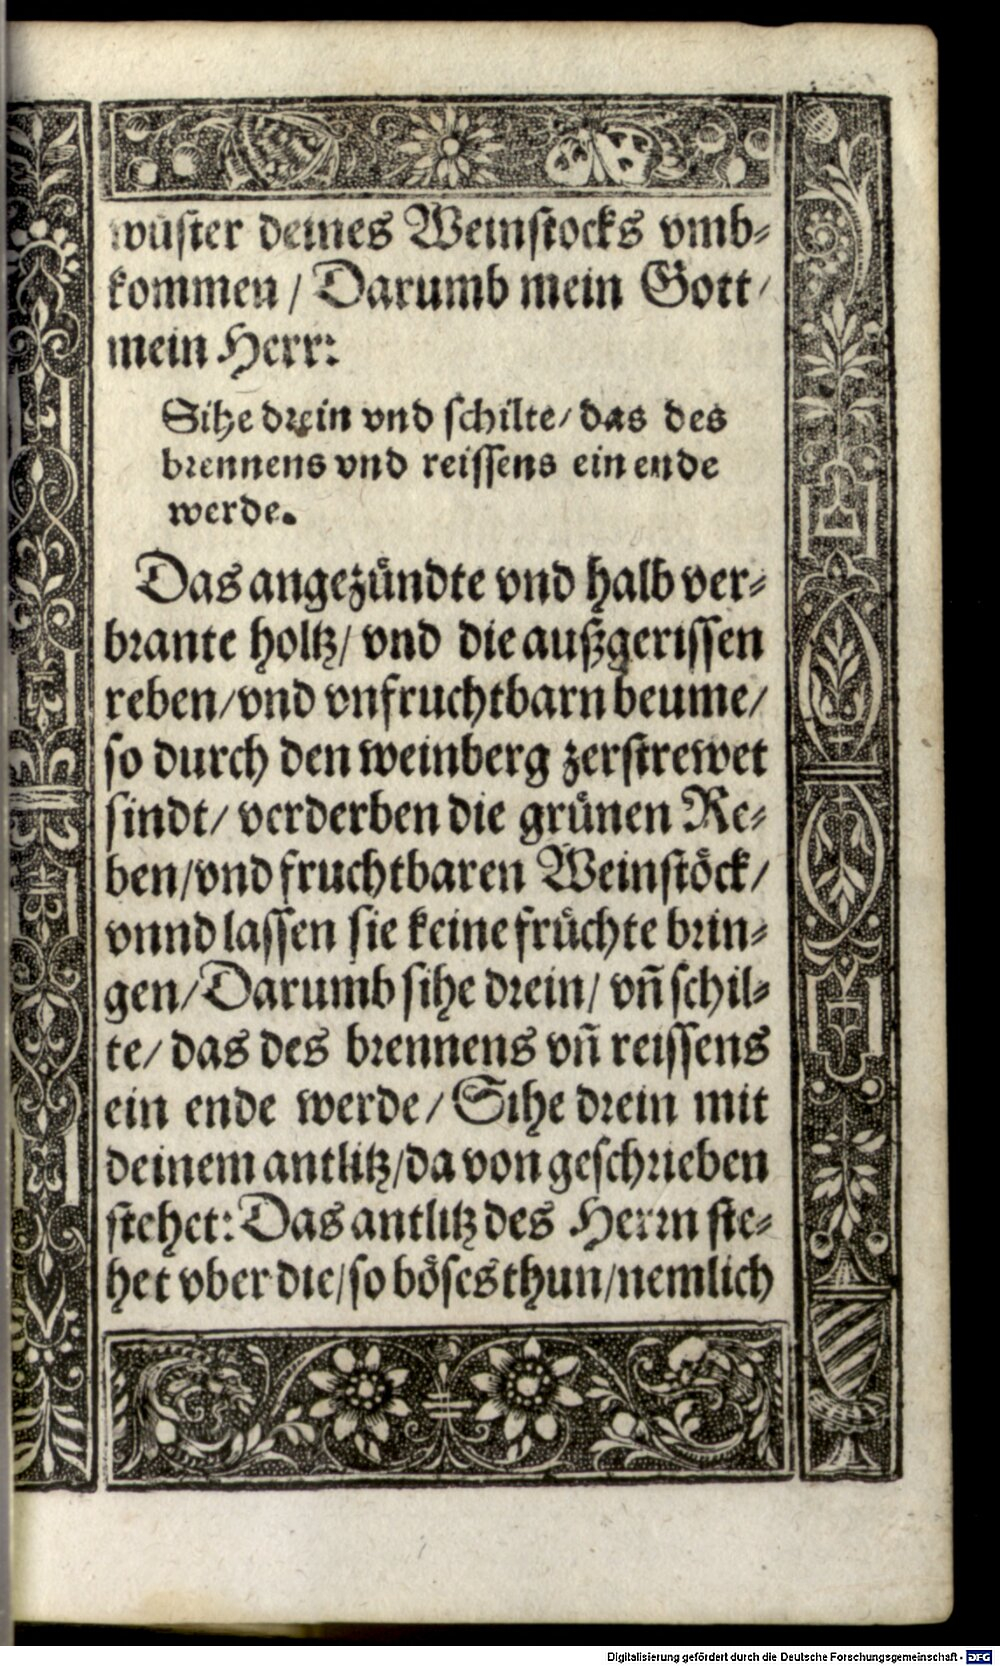 wuͤster deines Weinstocks vmb⸗
kommen / Darumb mein Gott /
mein Herr:
Sihe drein vnd schilte / das des
brennens vnd reissens ein ende
werde.
Das angezuͤndte vnd halb ver⸗
brante holtz / vnd die außgerissen
reben / vnd vnfruchtbarn beume /
so durch den weinberg zerstrewet
sindt / verderben die gruͤnen Re⸗
ben / vnd fruchtbaren Weinstoͤck /
vnnd lassen sie keine fruͤchte brin⸗
gen / Darumb sihe drein / vñ schil⸗
te / das des brennens vñ reissens
ein ende werde / Sihe drein mit
deinem antlitz / da von geschrieben
stehet: Das antlitz des Herrn ste⸗
het vber die / so boͤses thun / nemlich
Digitalisierung gefördert durch die Deutsche Forschungsgemeinschaft - DFG